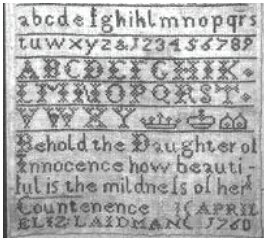 abcde fghiklmnopqrs
tuwxyz&123456789
ABCDEFGHIK
LMNOPQRST
VWXY
Behold the Daughter of
Innocence how beauti-
ful is the mildneſs of her
Countenence APRIL
ELIZ: LAIDMAN 1760